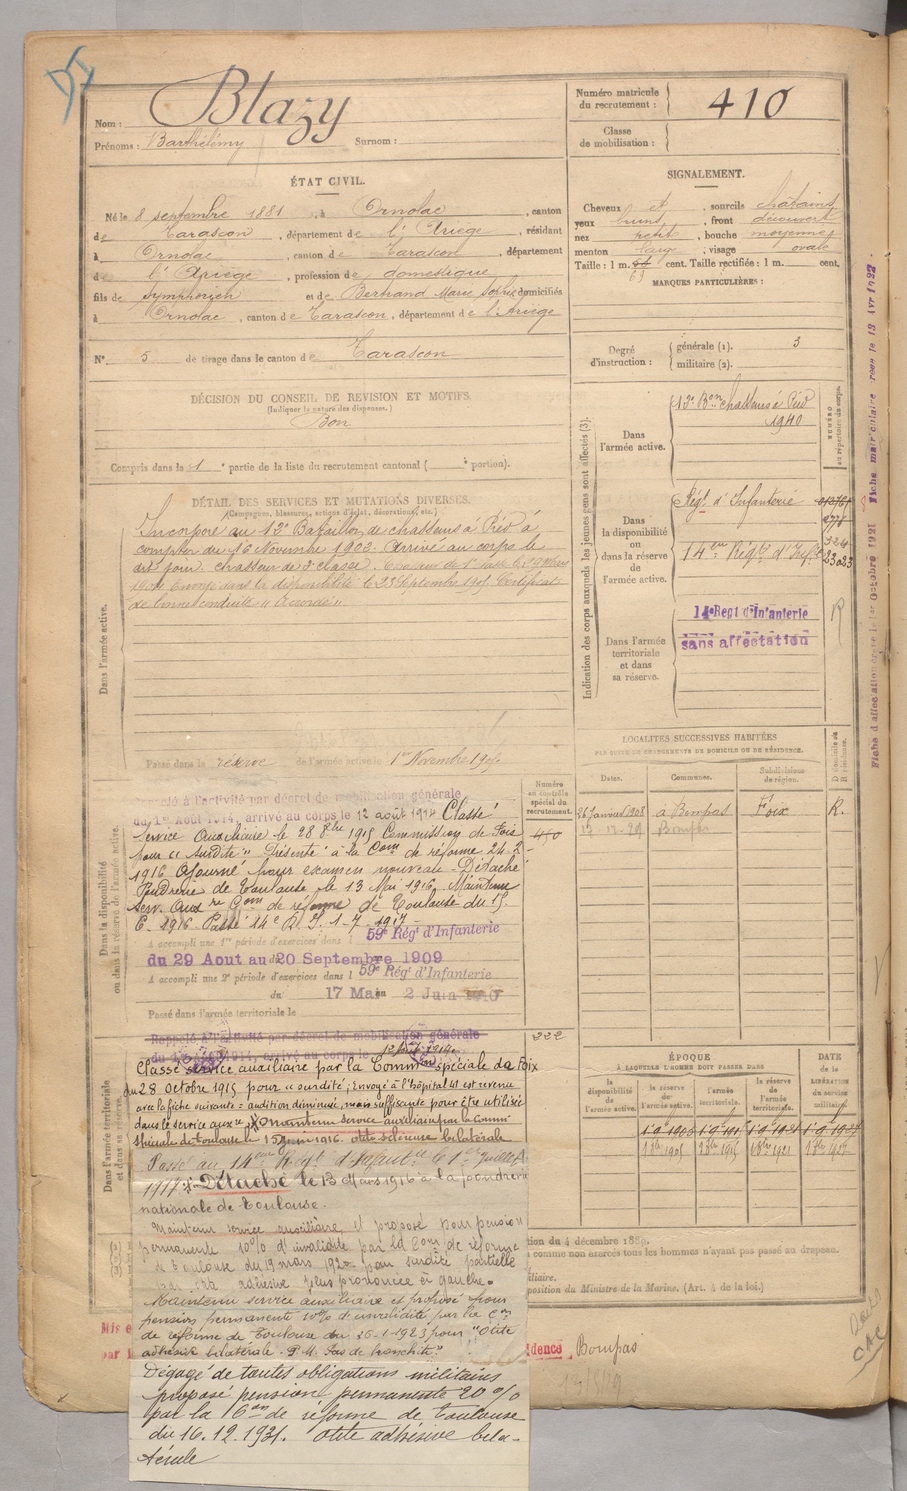 Nom : Blazy
Prénoms : Barthélémy Surnom :
Numéro matricule du recrutement : 410
Classe de mobilisation :
ÉTAT CIVIL.
Né le 8 septembre 1881, à Ornolac, canton
de Tarascon, département de l'Ariège, résidant
à Ornolac, canton de Tarascon, département
de l'Ariège, profession de domestique
fils de Symphorien et de Bernand Marie Sophie domiciliés
à Ornolac, canton de Tarascon, département de l'Ariège
N° 5 de tirage dans le canton de Tarascon
SIGNALEMENT.
Cheveux et, sourcils châtains
yeux bruns, front découvert
nez petit, bouche moyenne
menton large, visage ovale
Taille : 1 m. cent. Taille rectifiée : 1 m. cent.
MARQUES PARTICULIÈRES :
Degré d'instruction : générale (1). 3
militaire (2).
DÉCISION DU CONSEIL DE REVISION ET MOTIFS.
(Indiquer la nature des dispenses.)
Bon
Compris dans la 1e partie de la liste du recrutement cantonal ( e portion).
DÉTAIL DES SERVICES ET MUTATIONS DIVERSES.
(Campagnes, blessures, actions d'éclat, décorations, etc.)
Dans l'armée active.
Incorporé au 13e Bataillon de chasseurs à Pied à
compter du 16 Novembre 1903. Arrivé au corps le
dit jour chasseur de 2e classe.
Envoyé dans la disponibilité le 23 Septembre 1905. Certificat
de bonne conduite "Accordé".
Passé dans la réserve de l'armée active le 1er Novembre 1905
Indication des corps auxquels les jeunes gens sont affectés (3).
NUMÉRO au répertoire du corps.
Dans l'armée active.
13e Bon chasseurs à Pied
1940
Dans la disponibilité ou dans la réserve de l'armée active.
Régt d'Infanterie
14eme Régt d'Infie
Dans l'armée territoriale et dans sa réserve.
14e Regt d'Infanterie
sans affectation
R
LOCALITÉS SUCCESSIVES HABITÉES
PAR SUITE DE CHANGEMENTS DE DOMICILE OU DE RÉSIDENCE.
Dates. Communes. Subdivisions de région. D domicile ou R résidence.
26 janvier 1908 à Bompas Foix R.
Bompas
Dans la disponibilité ou dans la réserve de l'armée active.
Numéro au contrôle spécial du recrutement.
Rappelé à l'activité par décret de mobilisation générale
du 1er Août 1914, arrivé au corps le 12 août 1914 Classé
Service Auxiliaire le 28 8bre 1915 Commission de Foix
pour "surdité" Présenté à la Com de réforme 24-2-
1916 Ajourné pour examen nouveau - Détaché
Poudrerie de Toulouse le 13 Mai 1916, Maintenu
Serv. Auxre Com de réforme de Toulouse du 15-
6-1916 - Passé 14e R. I. 1-7-1917 -
A accompli une 1re période d'exercices dans l 59e Régt d'Infanterie
du 29 Aout au 20 Septembre 1909
A accompli une 2e période d'exercices dans l 59e Régt d'Infanterie
du 17 Mai au 2 Juin 1910
Passé dans l'armée territoriale le
Dans l'armée territoriale et dans sa réserve
222
Rappelé à l'activité par décret de mobilisation générale
du 1914, arrivé au corps le 12 Août 1914.
Classé service auxiliaire par la Common spéciale de Foix
du 28 Octobre 1915 pour "surdité"; Envoyé à l'hôpital 41 est revenu
avec la fiche suivante: audition diminuée, mais suffisante pour être utilisée
dans le service auxre Maintenu service auxiliaire par la Comm
spéciale de Toulouse le 15 Juin 1916. otite scléreuse bilatérale
Passé au 14eme Régt d'Infantie le 1er Juillet
1917. Détaché le 13 Mars 1916 à la poudrerie
nationale de Toulouse.
Maintenu service auxiliaire et proposé pour pension
permanente 10% d'invalidité par la Com de réforme
de Toulouse du 19 mars 192 pour surdité partielle
par otite adhésive plus prononcée à gauche.
Maintenu service auxiliaire et proposé pour
pension permanente 10% d'invalidité par la Con
de réforme de Toulouse du 26-1-1923 pour "otite
adhésive bilatérale. P. M. Pas de bronchite"
Dégagé de toutes obligations militaires
proposé pension permanente 20%
par la Con de réforme de Toulouse
du 16.12.1931. otite adhésive bila-
térale
ÉPOQUE
À LAQUELLE L'HOMME DOIT PASSER DANS
la disponibilité de l'armée active. la réserve de l'armée active. l'armée territoriale. la réserve de l'armée territoriale.
DATE de la LIBÉRATION du service militaire.
tion du 4 décembre 1889.
comme non exercés tous les hommes n'ayant pas passé au drapeau.
position du Ministre de la Marine. (Art. 4 de la loi.)
Mis e
par
dence Bompas